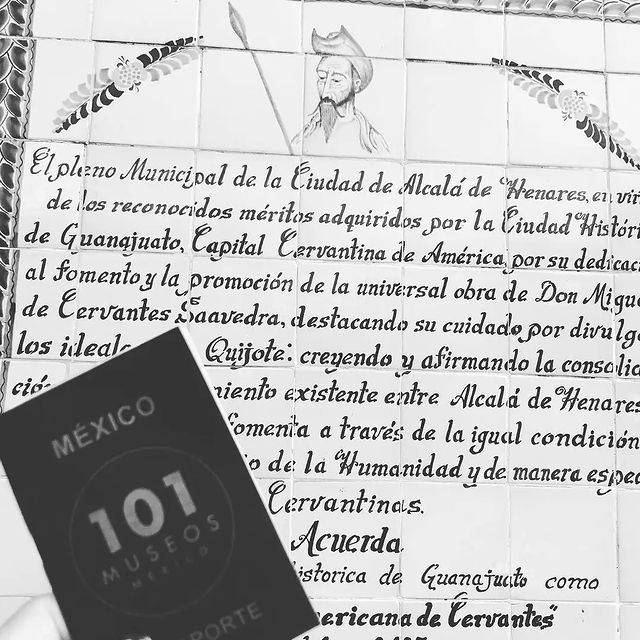 El pleno Municipal de la Ciudad de Alcalá de Henares, en vir
de los reconocidos méritos adquiridos por la Ciudad Históri
de Guanajuato, Capital Cervantina de América, por su dedicac
al fomento y la promoción de la universal obra de Don Migue
de Cervantes Saavedra, destacando su cuidado por divulga
los ideale Quijote: creyendo y afirmando la consolid
ció miento existente entre Alcalá de Henares
fomenta a través de la igual condición
io de la Humanidad y de manera espec
Cervantinas.
Acuerda
istorica de Guanajuato como
ericana de Cervantes"
MÉXICO
101
MUSEOS
MÉXICO
PORTE